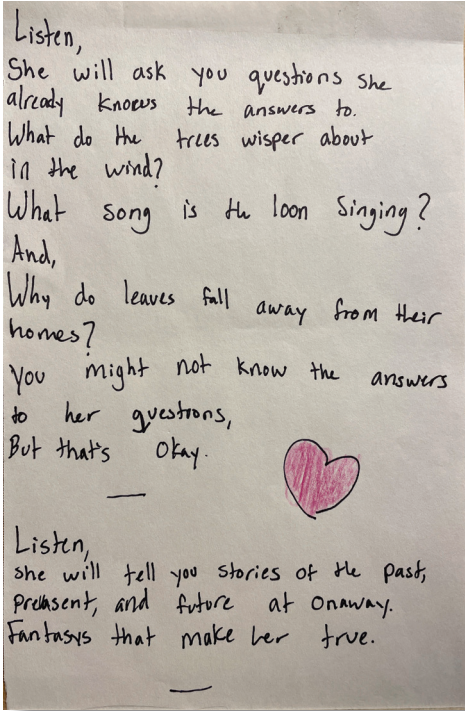 Listen,
She will ask you questions she
already knows the answers to.
What do the trees wisper about
in the wind?
What song is the loon singing?
And,
Why do leaves fall away from their
homes?
You might not know the answers
to her questions,
But that's Okay.
Listen,
she will tell you stories of the past,
and future at Onaway.
Fantasys that make her true.